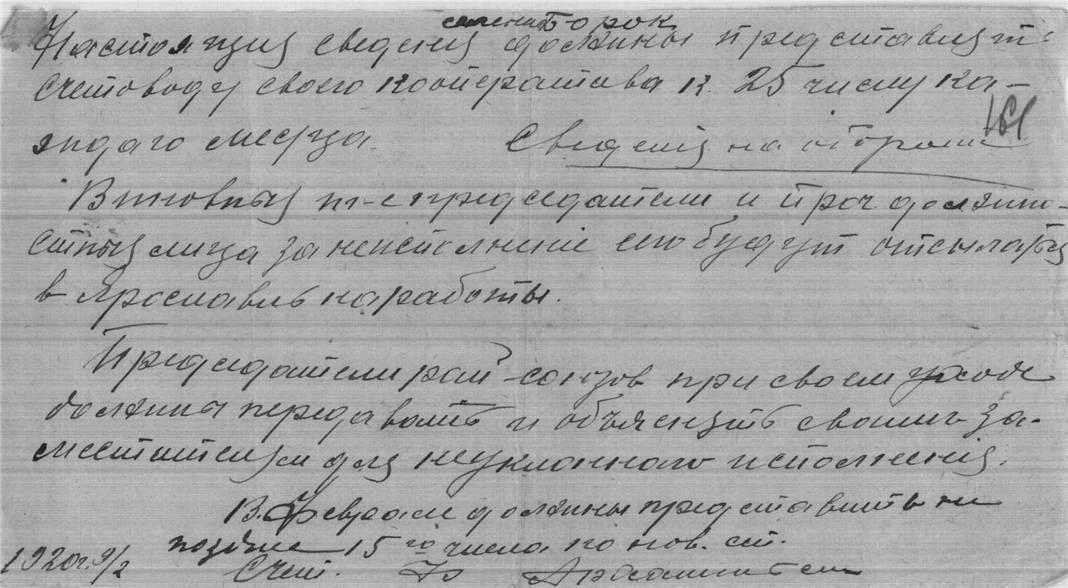 Настоящия сведения должны представлят
счетоводу своего кооператива к. 25 числу ка-
ждаго месяца. Сведения на обороте
161
Виновныя т-е председатели и проч должно-
стныя лица за неисполнение сего будут отсылаться
в Ярославль на работы.
Председатели рай-союзов при своем уходе
должны передавать и объяснять своим за-
местителям для неуклонного исполнения.
В Феврале должны представить не
позднее 15го числа по нов. ст.
1920г. 9/2 Счет.